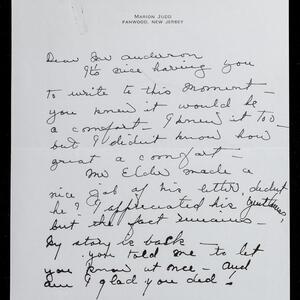 MARION JUDD
FANWOOD, NEW JERSEY
Dear Joe Anderson
It's nice having you
to write to this moment —
you knew it would be
a comfort — I knew it too —
but I didn't know how
great a comfort —
Mr Elder made a
nice job of his letter, didn't
he? I appreciated his gentleness,
but the fact remains —
My story is back —
you told me to let
you know at once — and
am I glad you did!